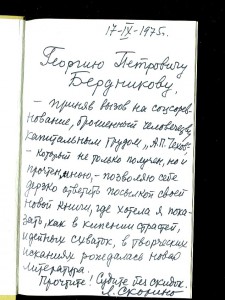 17-IX-1975г.
Георгию Петровичу
Бердникову,
– приняв вызов на соцсорев-
нование, брошенный человечеству
капитальным трудом „А.П. Чехов"
– который не только получен, но и
прочтен мною, – позволяю себе
дерзко ответить посылкой своей
новой книги, где хотела я пока-
зать, как в кипении страстей,
идейных схваток, в творческих
исканиях рождалась новая
литература.
Прочтите! Судите без скидок.
Л. Скорино